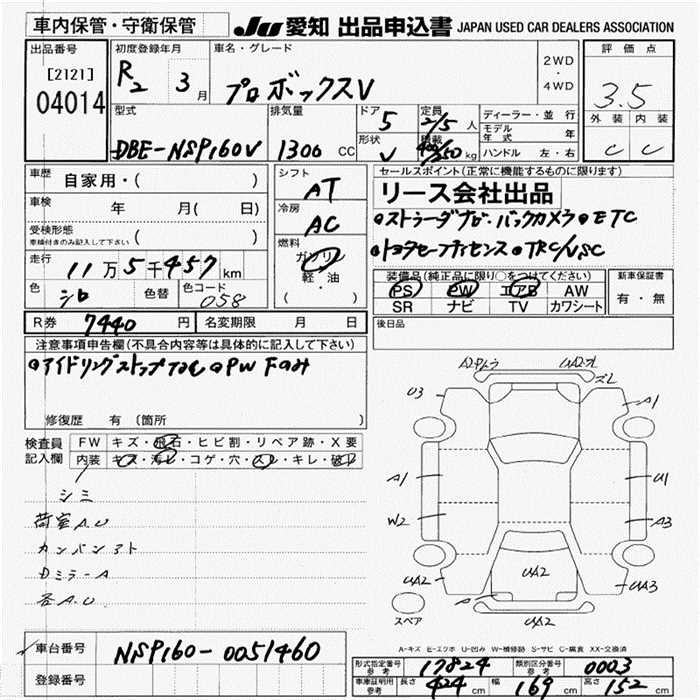 車内保管・守衛保管
JU 愛知 出品申込書 JAPAN USED CAR DEALERS ASSOCIATION
出品番号 初度登録年月 車名・グレード 評価点
[2121] R2 3月 プロボックスV 2WD・4WD 3.5
04014
外装 内装
C C
型式 排気量 ドア 定員 ディーラー・並行
DBE-NSP160V 1300 CC 5 2/5人 モデル年式 年
形状 積載 ハンドル 左・右
V 400/250kg
車歴 自家用・( ) シフト AT
車検 年 月( 日) 冷房 AC
受検形態 車検付きのみ記入して下さい ( ) 燃料 ガソリン 軽・油 ( )
走行 11万5千457km
色 シロ 色替 色コード 058
R券 7440円 名変期限 月 日
セールスポイント(正常に機能するものに限ります)
リース会社出品
●ストラーダナビ●バックカメラ●ETC
●トヨタセーフティセンス●TRC/VSC
装備品(純正品に限り○をつけてください) 新車保証書
PS PW エアB AW 有・無
SR ナビ TV カワシート
後日品
注意事項申告欄(不具合内容等は具体的に記入して下さい)
●アイドリングストップ ●PW Fのみ
修復歴 有 (箇所 )
検査員記入欄 FW キズ・飛石・ヒビ割・リペア跡・X要
内装 キズ・汚レ・コゲ・穴・スレ・キレ・破レ
シミ
荷室A.U
カンバンアト
Dミラ-A
各A.U
U3
A1
A1
U1
W2
A3
UA2
UA2
UA3
UA2
スペア
A-キズ E-エクボ U-凹み W-補修跡 S-サビ C-腐食 XX-交換済
車台番号 NSP160-0051460
登録番号
形式指定番号 参考 17824 類別区分番号 参考 0003
車庫証明用 参考 長さ 424cm 幅 169cm 高さ 152cm